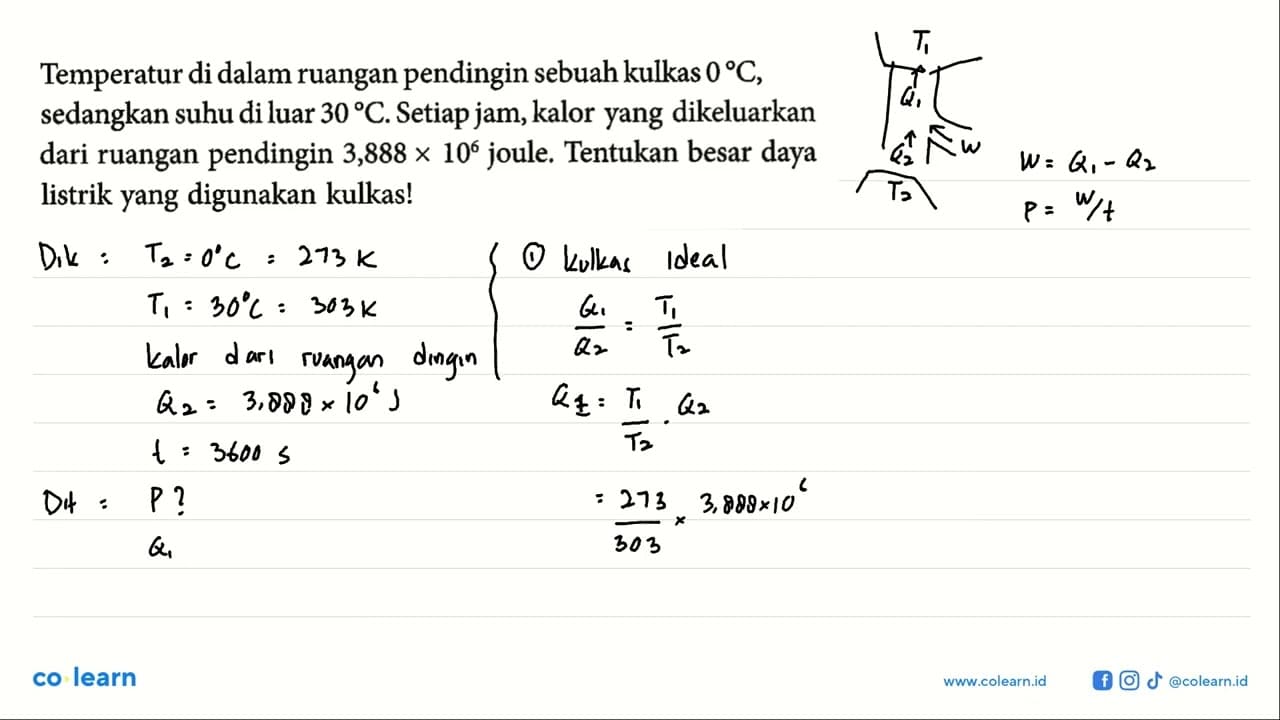 Temperatur di dalam ruangan pendingin sebuah kulkas 0 °C,
sedangkan suhu di luar 30 °C. Setiap jam, kalor yang dikeluarkan
dari ruangan pendingin 3,888 × 10⁶ joule. Tentukan besar daya
listrik yang digunakan kulkas!
T₁
Q₁
Q₂
W
T₂
W = Q₁ - Q₂
P = W/t
Dik : T₂ = 0°C = 273 K
T₁ = 30°C = 303 K
kalor dari ruangan dingin
Q₂ = 3,888 × 10⁶ J
t = 3600 s
Dit : P?
Q₁
① kulkas ideal
Q₁/Q₂ = T₁/T₂
Q₁ = T₁/T₂ . Q₂
= 273/303 × 3,888×10⁶
co learn
www.colearn.id
@colearn.id